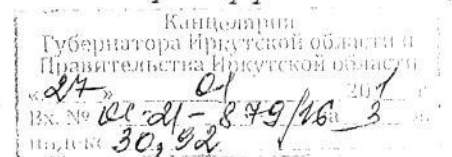 Канцелярия
Губернатора Иркутской области и
Правительства Иркутской области
«27» 01 20 1 г.
Вх. № 21-879/16 3 л.
индекс 30,92